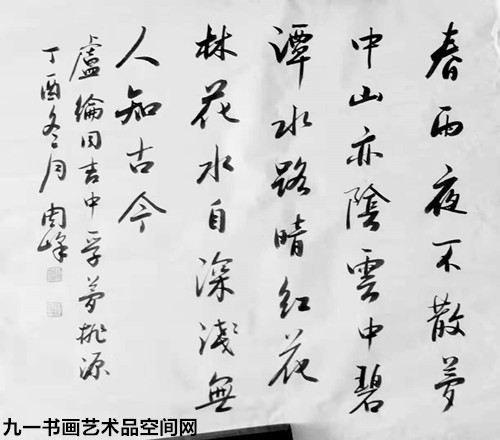 春雨夜不散夢
中山亦陰雲中碧
潭水路暗紅花
林花水自深淺無
人知古今
盧綸同吉中孚夢桃源
丁酉冬月周峰
九一书画艺术品空间网